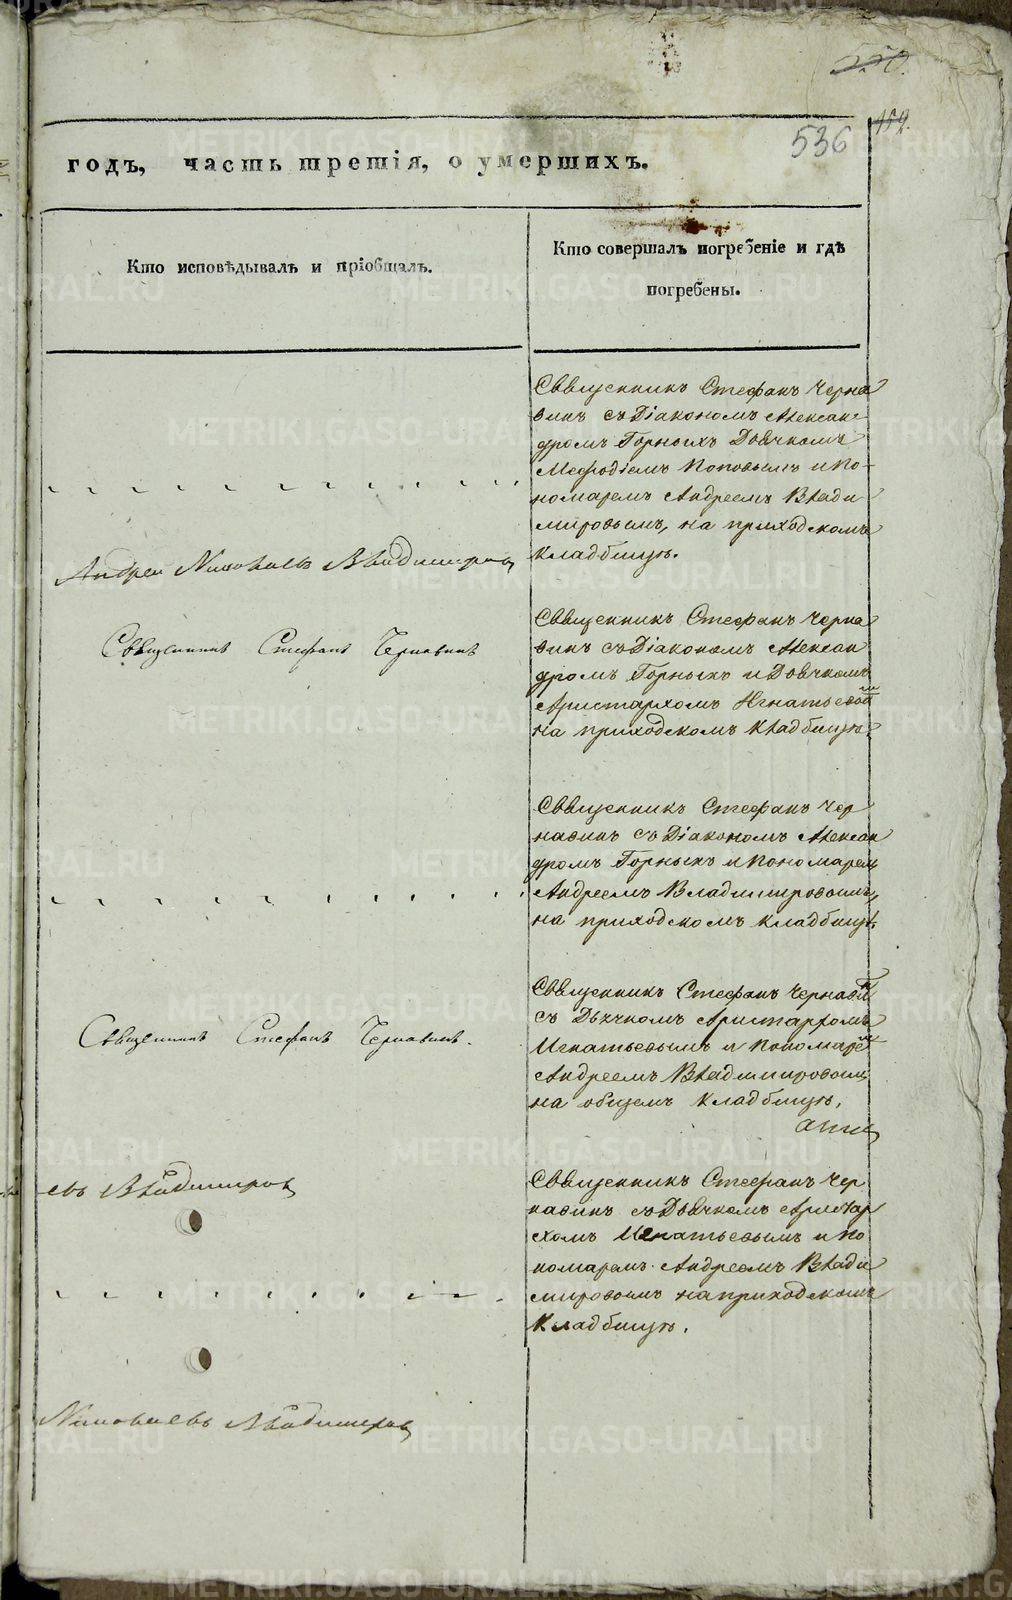 536
годъ, часть третія, о умершихъ.
Кто исповѣдывалъ и пріобщалъ.
Кто совершалъ погребеніе и гдѣ
погребены.
Священникъ Стефанъ Черна
винъ съ Діакономъ Алексан
дромъ Горныхъ Дьячкомъ
Мефодіемъ Поповымъ и по-
номаремъ Андреемъ Влади
мировымъ, на приходскомъ
кладбищѣ.
Андрей Николаевъ Владимиров
Священникъ Стефанъ Чернавинъ
Священникъ Стефанъ Черна
винъ съ Діакономъ Алексан
дромъ Горныхъ и Дьячкомъ
Аристархомъ Игнатьевым
на приходскомъ кладбищѣ.
Священникъ Стефанъ Чер
навинъ съ Діакономъ Алексан
дромъ Горныхъ и пономарем
Андреемъ Владимировымъ,
на приходскомъ кладбищѣ
Священникъ Стефанъ Чернавин
съ Дьячкомъ Аристархомъ
Игнатьевымъ и пономарем
Андреемъ Владимировым
на общемъ кладбищѣ,
Священникъ Стефанъ Чернавинъ.
евъ Владимиров
Священникъ Стефанъ Чер
навинъ съ Дьячкомъ Аристар
хомъ Игнатьевымъ и по
номаремъ Андреемъ Влади
мировымъ на приходскомъ
кладбищѣ.
Николаевъ Владимиров
METRIKI.GASO-URAL.RU